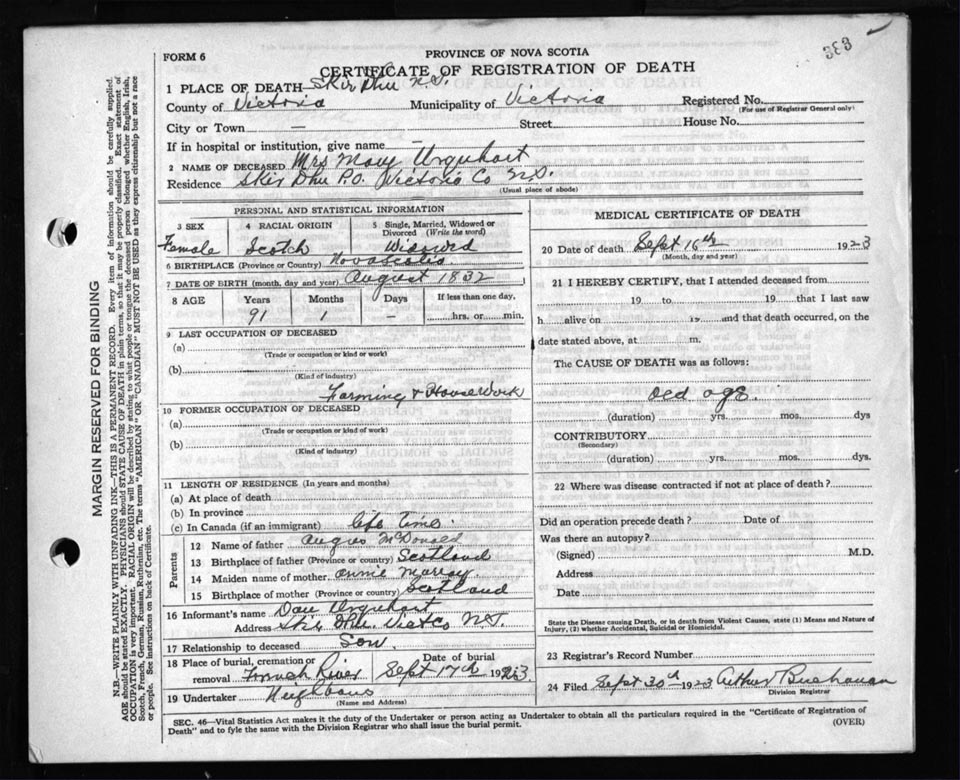 383
FORM 6
PROVINCE OF NOVA SCOTIA
CERTIFICATE OF REGISTRATION OF DEATH
1 PLACE OF DEATH Skir Dhu N.S.
County of Victoria Municipality of Victoria Registered No.
(For use of Registrar General only)
City or Town — Street House No.
If in hospital or institution, give name —
2 NAME OF DECEASED Mrs Mary Urquhart
Residence Skir Dhu P.O. Victoria Co N.S.
(Usual place of abode)
PERSONAL AND STATISTICAL INFORMATION
3 SEX 4 RACIAL ORIGIN 5 Single, Married, Widowed or Divorced (Write the word)
Female Scotch Widowed
6 BIRTHPLACE (Province or Country) Nova Scotia
7 DATE OF BIRTH (month, day and year) August 1832
8 AGE Years Months Days If less than one day,
91 1 — hrs. or min.
9 LAST OCCUPATION OF DECEASED
(a)
(Trade or occupation or kind or work)
(b)
(Kind of industry)
Farming & House Work
10 FORMER OCCUPATION OF DECEASED
(a)
(Trade or occupation or kind of work)
(b)
(Kind of industry)
11 LENGTH OF RESIDENCE (In years and months)
(a) At place of death
(b) In province
(c) In Canada (if an immigrant) life time
Parents
12 Name of father Angus McDonald
13 Birthplace of father (Province or country) Scotland
14 Maiden name of mother Annie Murray
15 Birthplace of mother (Province or country) Scotland
16 Informant's name Dan Urquhart
Address Skir Dhu Vict Co N.S.
17 Relationship to deceased Son
18 Place of burial, cremation or removal French River Date of burial Sept 17th 1923
19 Undertaker Neighbours
(Name and Address)
MEDICAL CERTIFICATE OF DEATH
20 Date of death Sept 16th 1923
(Month, day and year)
21 I HEREBY CERTIFY, that I attended deceased from
19 to 19 that I last saw
h alive on 19 and that death occurred, on the
date stated above, at m.
The CAUSE OF DEATH was as follows:
Old age
(duration) yrs. mos. dys
CONTRIBUTORY
(Secondary)
(duration) yrs. mos. dys.
22 Where was disease contracted if not at place of death?
Did an operation precede death? Date of
Was there an autopsy?
(Signed) M.D.
Address
Date
State the Disease causing Death, or in death from Violent Causes, state (1) Means and Nature of
Injury, (2) whether Accidental, Suicidal or Homicidal.
23 Registrar's Record Number
24 Filed Sept 30th 1923 Arthur Buchanan
Division Registrar
SEC. 46—Vital Statistics Act makes it the duty of the Undertaker or person acting as Undertaker to obtain all the particulars required in the "Certificate of Registration of
Death" and to fyle the same with the Division Registrar who shall issue the burial permit.
(OVER)
MARGIN RESERVED FOR BINDING
N.B.—WRITE PLAINLY WITH UNFADING INK—THIS IS A PERMANENT RECORD. Every item of information should be carefully supplied.
AGE should be stated EXACTLY. PHYSICIANS should STATE CAUSE OF DEATH in plain terms, so that it may be properly classified. Exact statement of
OCCUPATION is very important. RACIAL ORIGIN will be described by stating to what people or tongue the deceased person belonged whether English, Irish,
Scotch, French, German, Russian, Ruthenian, etc. The terms "AMERICAN" OR "CANADIAN" MUST NOT BE USED as they express citizenship but not a race
or people. See instructions on back of Certificate.